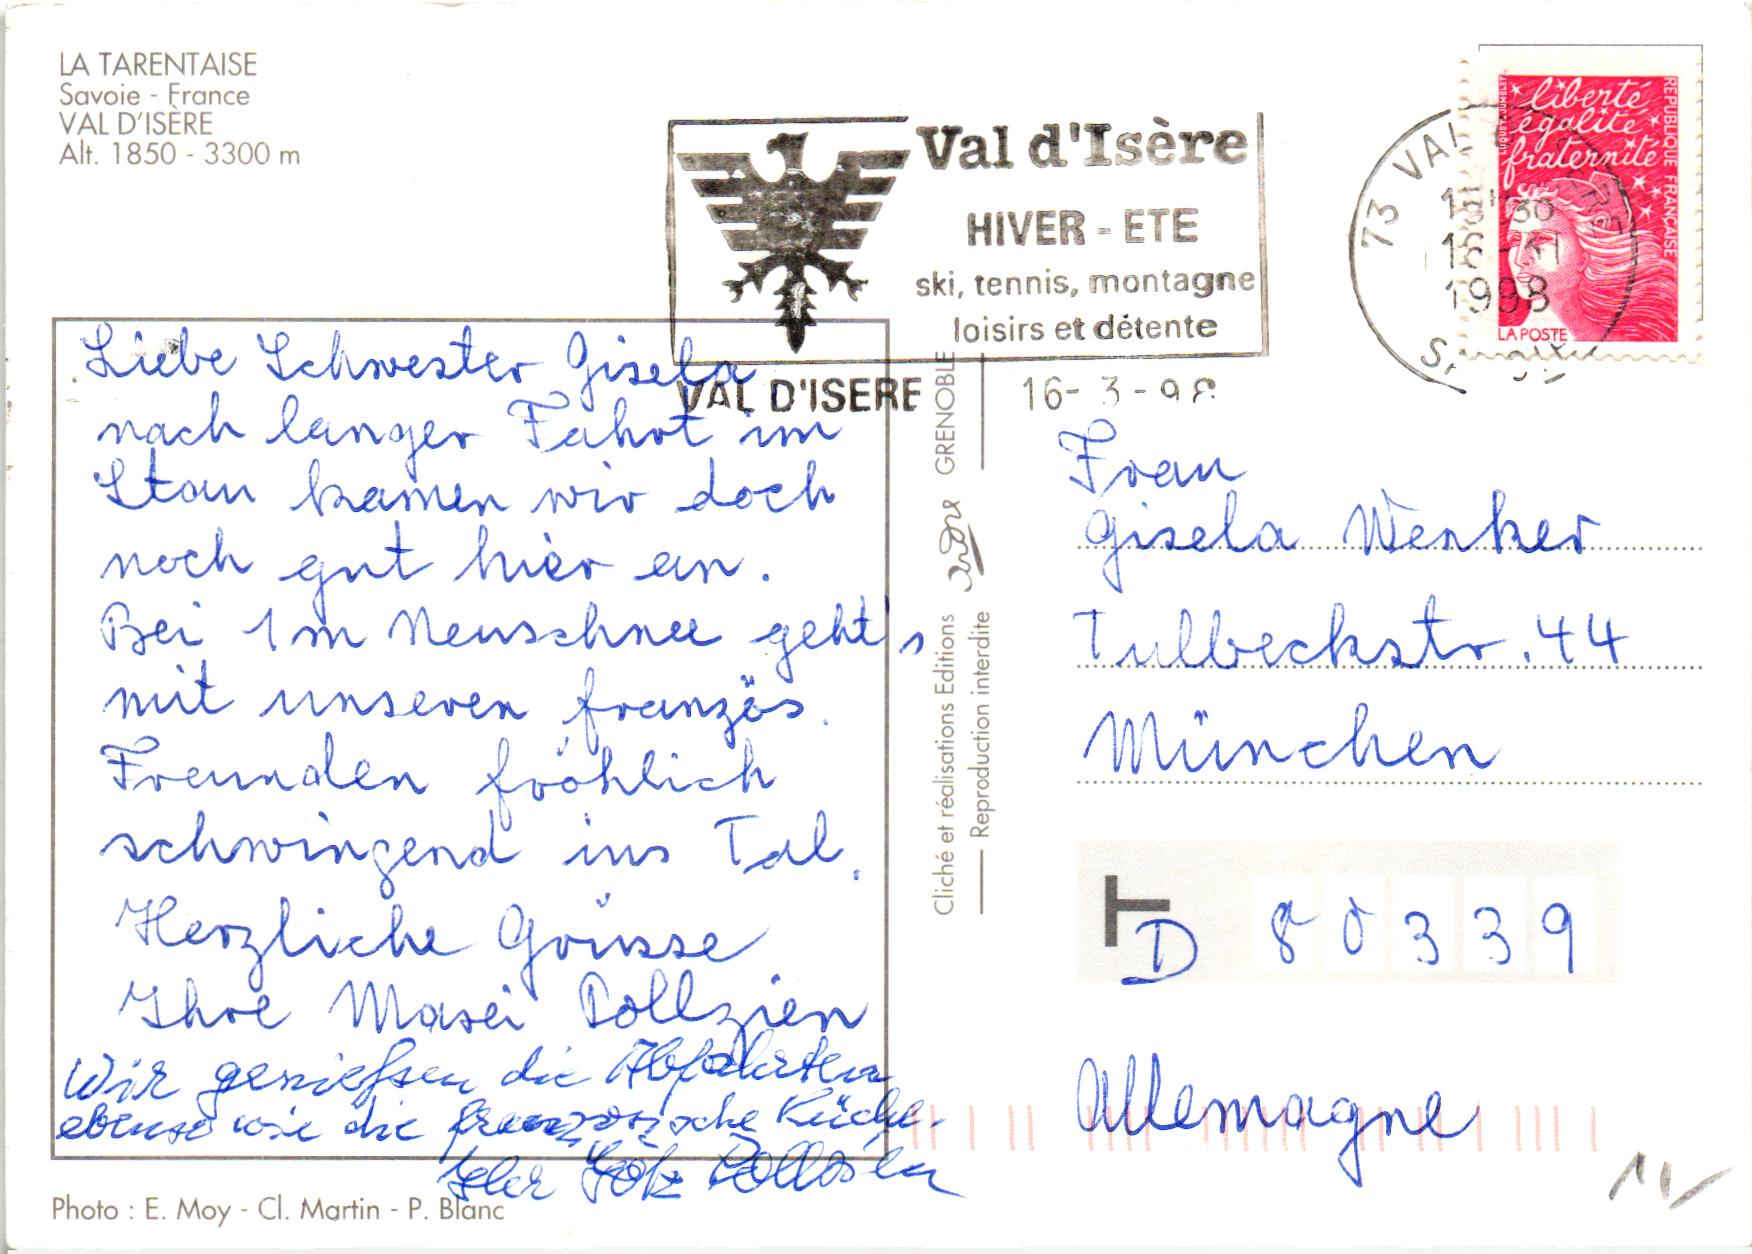 LA TARENTAISE
Savoie - France
VAL D'ISÈRE
Alt. 1850 - 3300 m
Val d'Isère
HIVER - ETE
ski, tennis, montagne
loisirs et détente
VAL D'ISERE
16-3-98
73 VAL
1998
liberté
égalité
fraternité
REPUBLIQUE FRANÇAISE
LA POSTE
Liebe Schwester Gisela
nach langer Fahrt im
Stau kamen wir doch
noch gut hier an.
Bei 1m Neuschnee geht's
mit unseren französ.
Freunden fröhlich
schwingend ins Tal.
Herzliche Grüsse
Ihre Marei Dollzien
Wir genießen die Abfahrten
ebenso wie die französische Küche.
Ihr Götz Dollzien
Cliché et réalisations Editions
GRENOBLE
Reproduction interdite
Frau
Gisela Wenker
Tulbeckstr. 44
München
D 80339
Allemagne
Photo : E. Moy - Cl. Martin - P. Blanc